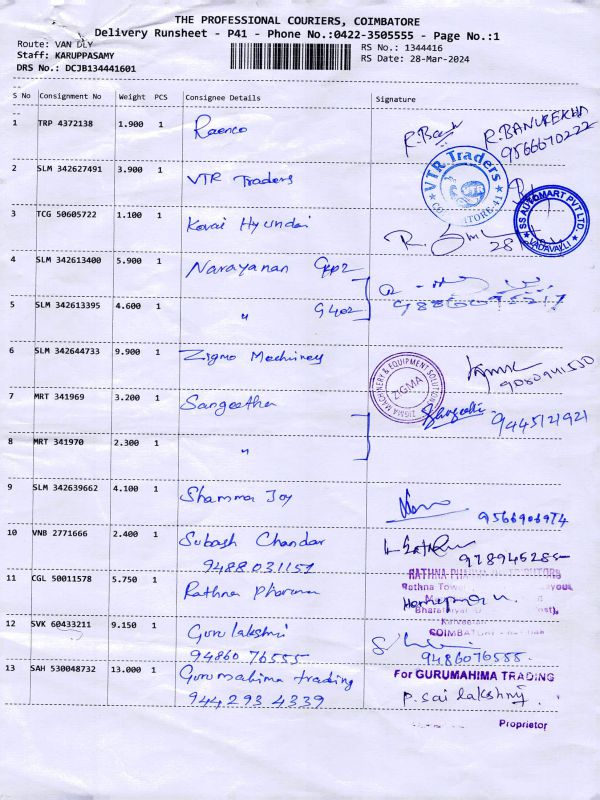 THE PROFESSIONAL COURIERS, COIMBATORE
Delivery Runsheet - P41 - Phone No.:0422-3505555 - Page No.:1
Route: VAN DLY
Staff: KARUPPASAMY
DRS No.: DCJB134441601
RS No.: 1344416
RS Date: 28-Mar-2024
S No Consignment No Weight PCS Consignee Details Signature
1 TRP 4372138 1.900 1 R. BANUREKHA
9566670222
2 SLM 342627491 3.900 1 VTR Traders
VTR Traders
SS AUTOMART PVT LTD
VADAVALLI
3 TCG 50605722 1.100 1 Kovai Hyundai
4 SLM 342613400 5.900 1 Narayanan
5 SLM 342613395 4.600 1 " G402
6 SLM 342644733 9.900 1 Zigma Machinery
ZIGMA MACHINERY & EQUIPMENT SOLUTIONS
ZIGMA
7 MRT 341969 3.200 1 Sangeetha
9445121921
8 MRT 341970 2.300 1 "
9 SLM 342639662 4.100 1 Shamma Joy
10 VNB 2771666 2.400 1 Subash Chandar
9488031151
11 CGL 50011578 5.750 1 Rathna Pharma
RATHNA
Rathna Tower
COIMBATORE
12 SVK 60433211 9.150 1 Gurulakshmi
94860 76555 9486076555
13 SAH 530048732 13.000 1 Gurumahima trading
944 293 4339
For GURUMAHIMA TRADING
P. Sai lakshmi
Proprietor